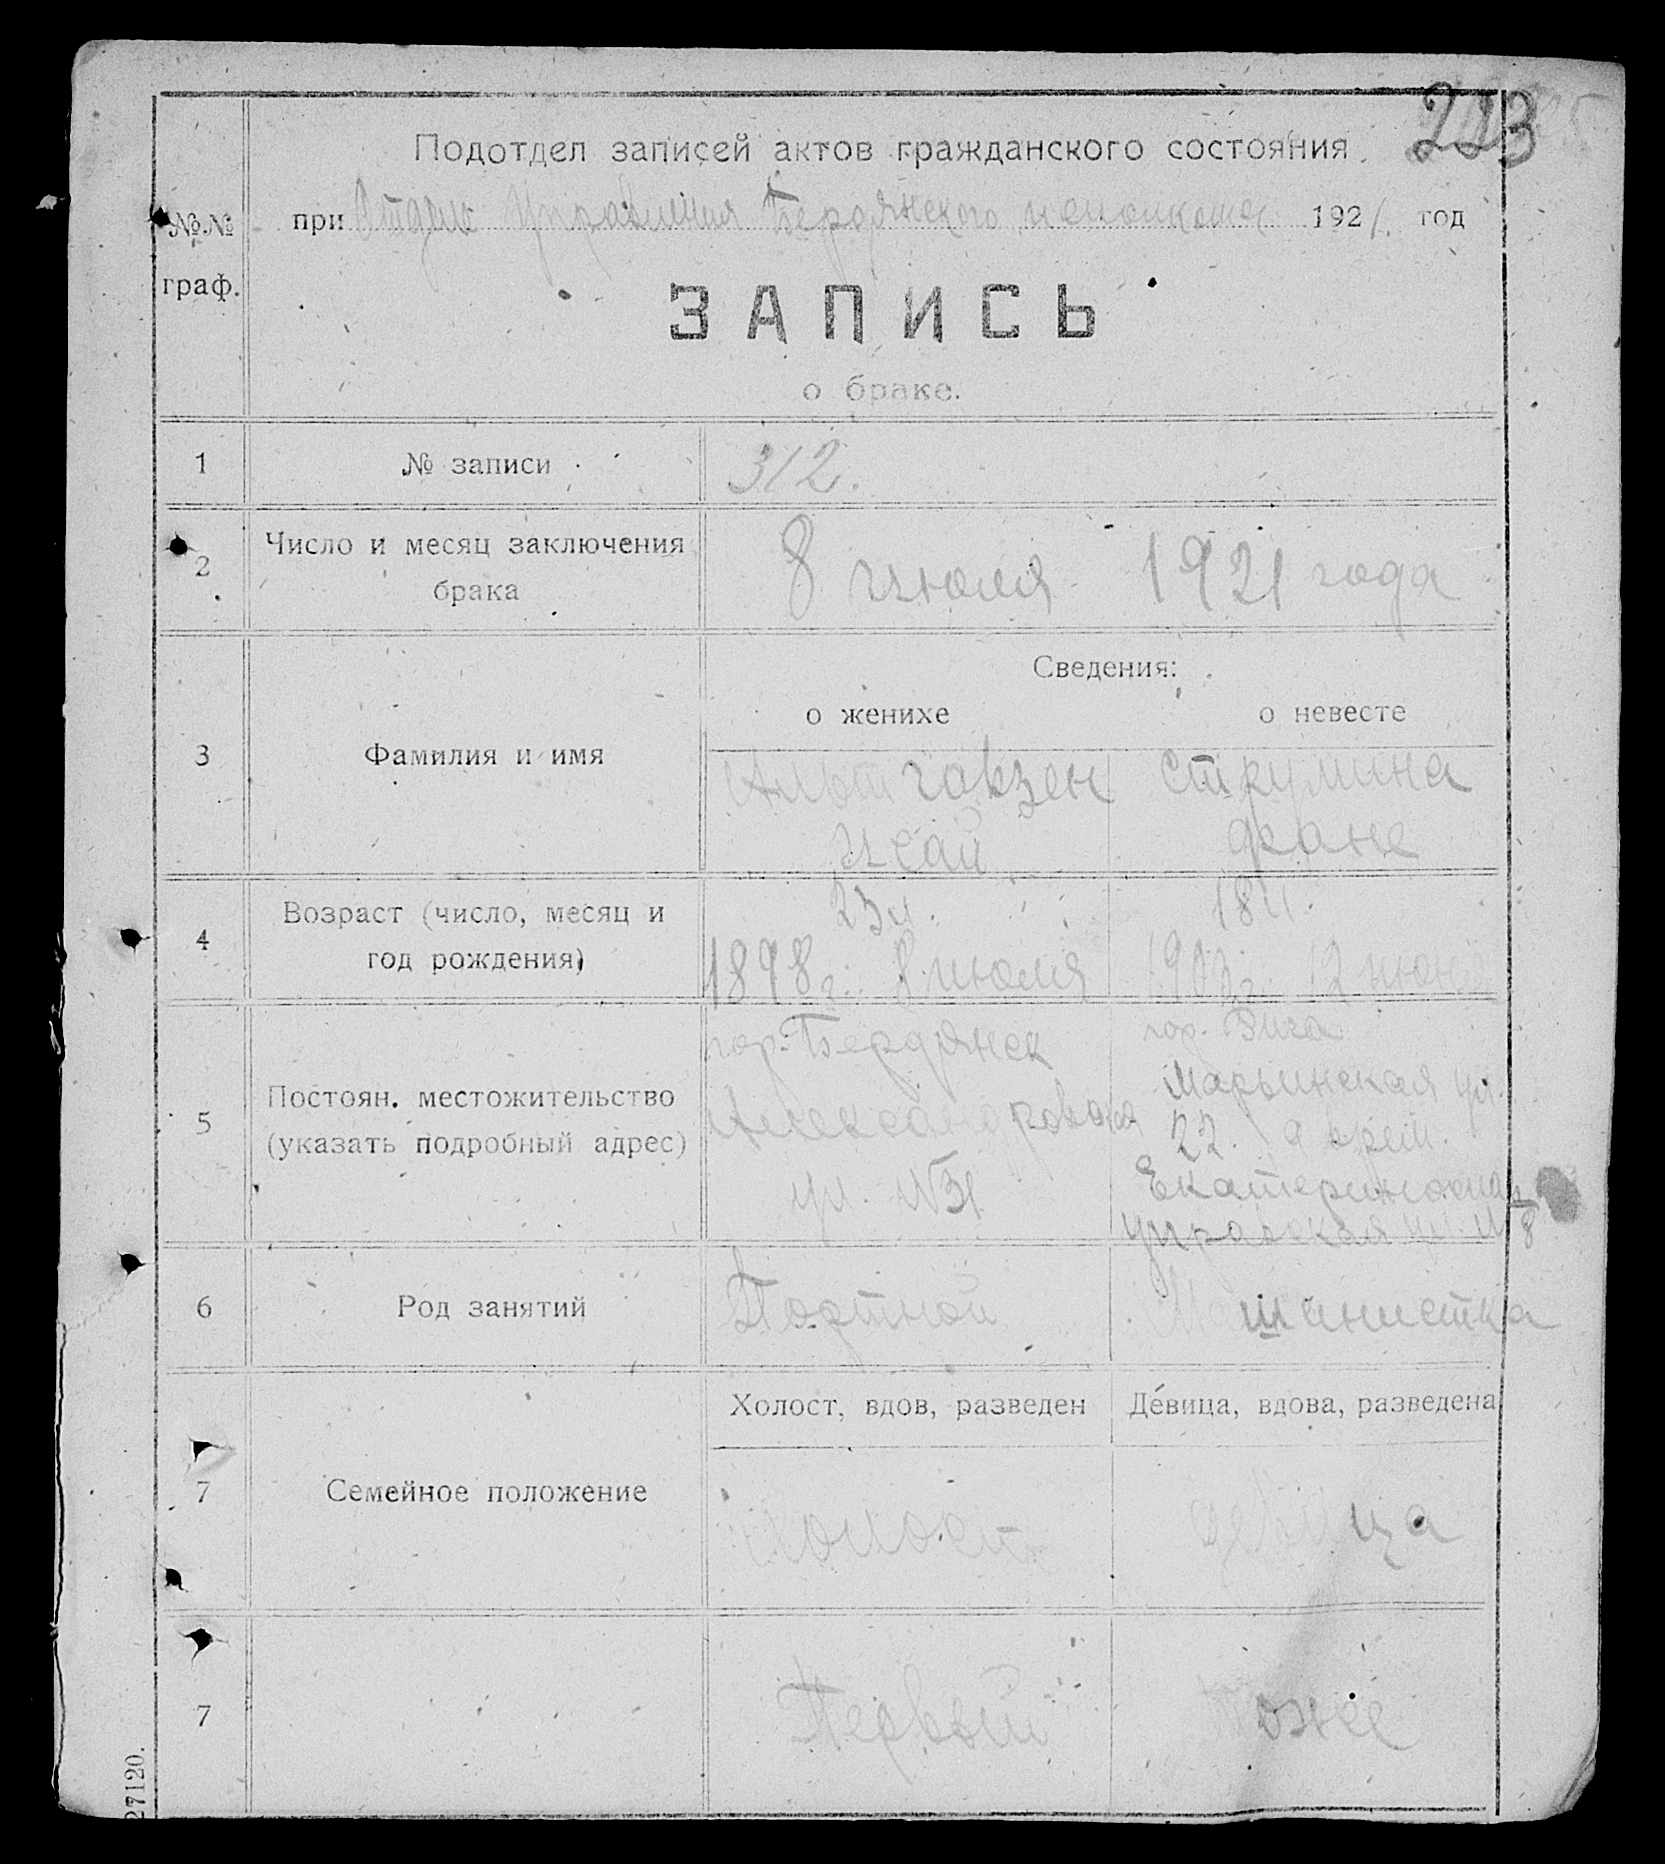 223
Подотдел записей актов гражданского состояния
при Отделе Управления Бердянского исполкома 1921 год
№№ граф.
ЗАПИСЬ
о браке.
1 № записи 312.
2 Число и месяц заключения брака
8 июля 1921 года
Сведения:
о женихе о невесте
3 Фамилия и имя
Альтгаузен Струмина
Исай Фане
4 Возраст (число, месяц и год рождения)
23 л. 18 л.
1898 г. 8 июля 1903 г. 12 июня
5 Постоян. местожительство (указать подробный адрес)
гор. Бердянск
Александровская
ул. №
гор. Рига
Марьинская ул.
22. а врем.
Екатеринослав
ул. 8
6 Род занятий
Портной Машинистка
Холост, вдов, разведен Девица, вдова, разведена
7 Семейное положение
холост девица
7 Первый тоже
27120.